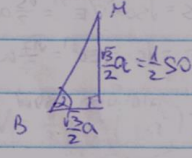 M
√3/2 a = 1/2 SO
α
B
√3/2 a